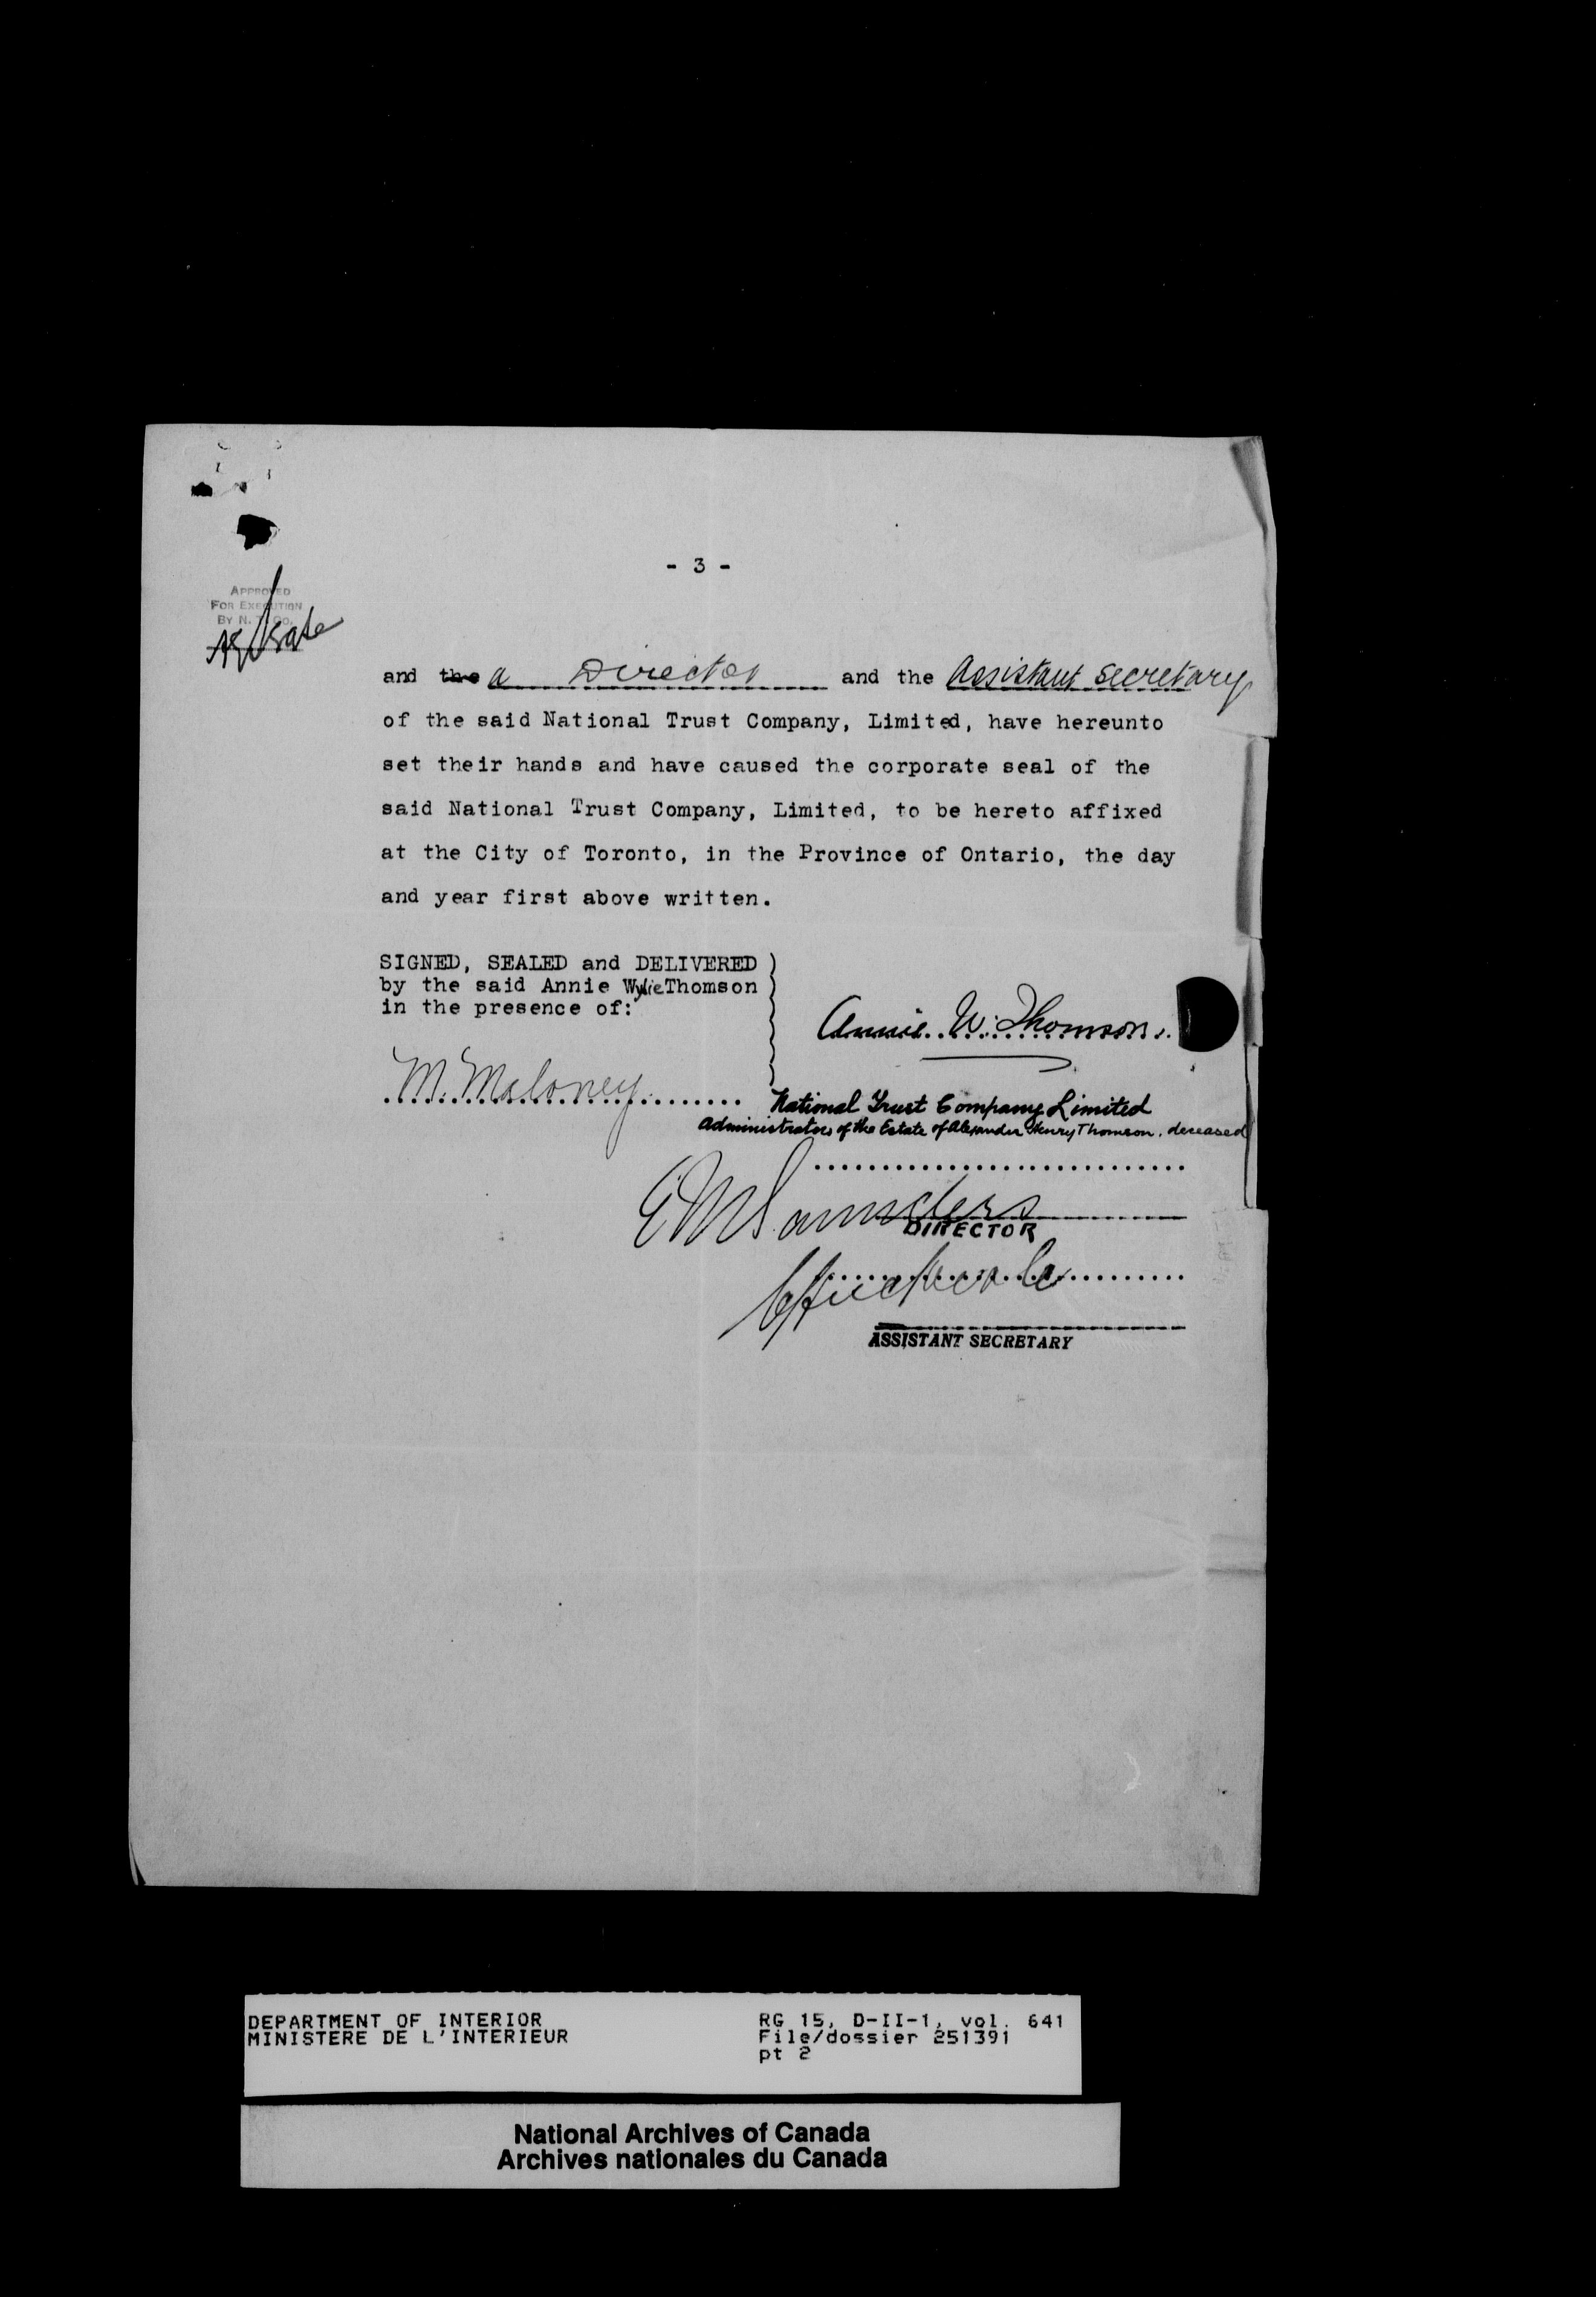 - 3 -
APPROVED
FOR EXECUTION
BY N. T. Co.
and the a Director and the Assistant Secretary
of the said National Trust Company, Limited, have hereunto
set their hands and have caused the corporate seal of the
said National Trust Company, Limited, to be hereto affixed
at the City of Toronto, in the Province of Ontario, the day
and year first above written.
SIGNED, SEALED and DELIVERED
by the said Annie Wylie Thomson
in the presence of:
Annie W. Thomson
M. Maloney
National Trust Company Limited
Administrators of the Estate of Alexander Henry Thomson, deceased
E M Saunders
DIRECTOR
ASSISTANT SECRETARY
DEPARTMENT OF INTERIOR RG 15, D-II-1, vol. 641
MINISTERE DE L'INTERIEUR File/dossier 251391
pt 2
National Archives of Canada
Archives nationales du Canada